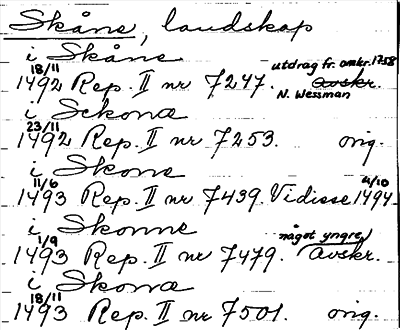 Skåne, landskap
i Skåne
18/11 utdrag fr. omkr. 1758
1492 Rep. II nr 7247. avskr.
N. Wessman
i Sckonæ
23/11
1492 Rep. II nr 7253. orig.
i Skone
11/6 4/10
1493 Rep. II nr 7439. Vidisse 1494
i Skonne
1/9 något yngre
1493 Rep. II nr 7479. avskr.
i Skona
18/11
1493 Rep. II nr 7501. orig.